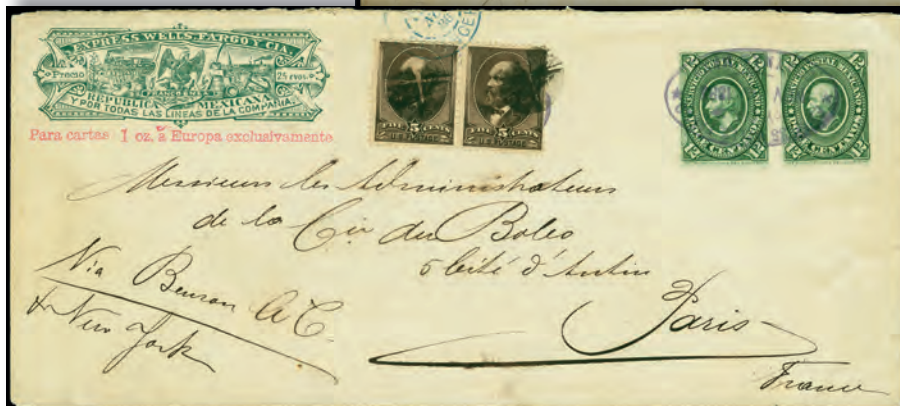 EXPRESS WELLS, FARGO Y CIA.
Precio 25 cvos.
FRANQUEESE
REPUBLICA MEXICANA
Y POR TODAS LAS LINEAS DE LA COMPAÑIA.
Para cartas 1 oz. á Europa exclusivamente
FIVE 5 CENTS
U.S. POSTAGE
FIVE 5 CENTS
U.S. POSTAGE
12 12
SERVICIO POSTAL MEXICANO
DOCE CENTAVOS
12 12
12 12
SERVICIO POSTAL MEXICANO
DOCE CENTAVOS
12 12
Messieurs les Administrateurs
de la Cie du Boleo
5 Cité d'Antin
Paris
France
Via Benson A C.
& New York